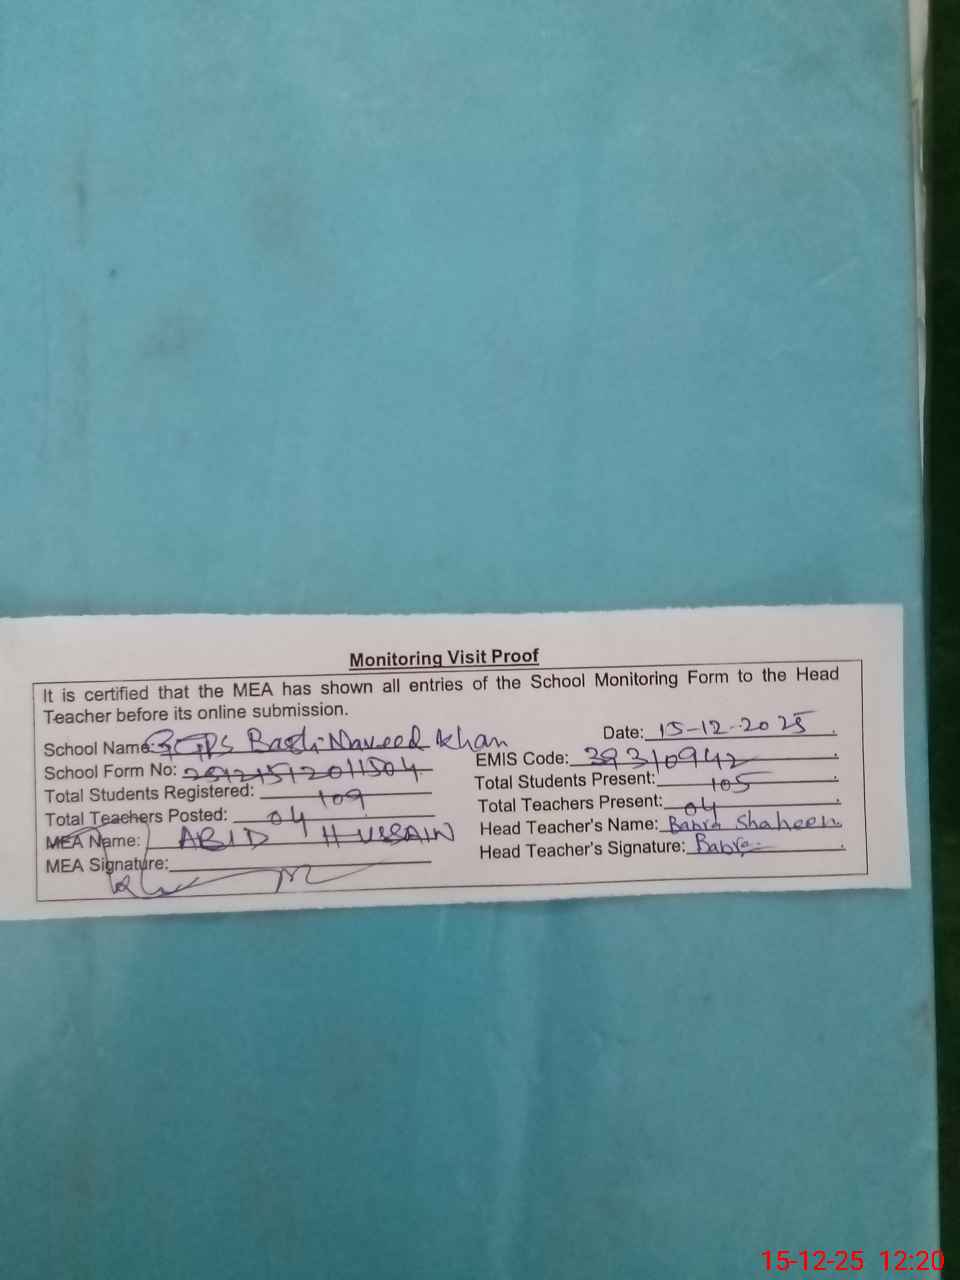 Monitoring Visit Proof
It is certified that the MEA has shown all entries of the School Monitoring Form to the Head
Teacher before its online submission.
School Name: GGPS Basti Naveed Khan Date: 15-12-2025
School Form No: EMIS Code: 39310942
Total Students Registered: 109 Total Students Present: 105
Total Teachers Posted: 04 Total Teachers Present: 04
MEA Name: ABID HUSSAIN Head Teacher's Name: Babra Shaheen
MEA Signature: Head Teacher's Signature: Babra
15-12-25 12:20